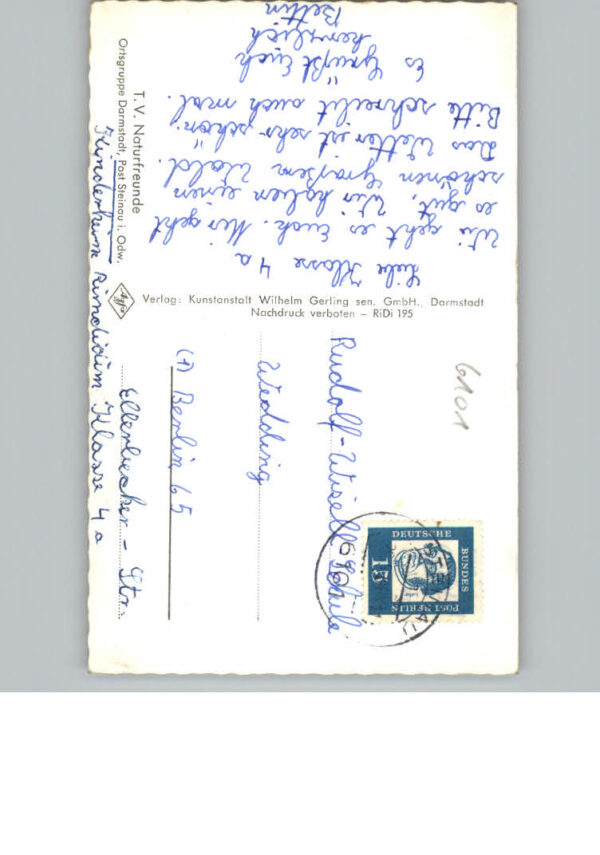 T. V. Naturfreunde
Ortsgruppe Darmstadt, Post Steinau i. Odw.
Kinderheim Rimdidim Klasse 4a
Liebe Klasse 4a
Wie geht es Euch. Mir geht
es gut. Wir haben einen
schönen großem Wald.
Das Wetter ist sehr schön.
Bitte schreibt auch mal.
Es Grüßt Euch
herzlich
Bettin
Agfa
Verlag: Kunstanstalt Wilhelm Gerling sen. GmbH., Darmstadt
Nachdruck verboten – RiDi 195
6101
DEUTSCHE
BUNDES
POST BERLIN
15
6101
Rudolf-Wisell Schule
Wedding
(1) Berlin 65
Ellerbecher-Str.